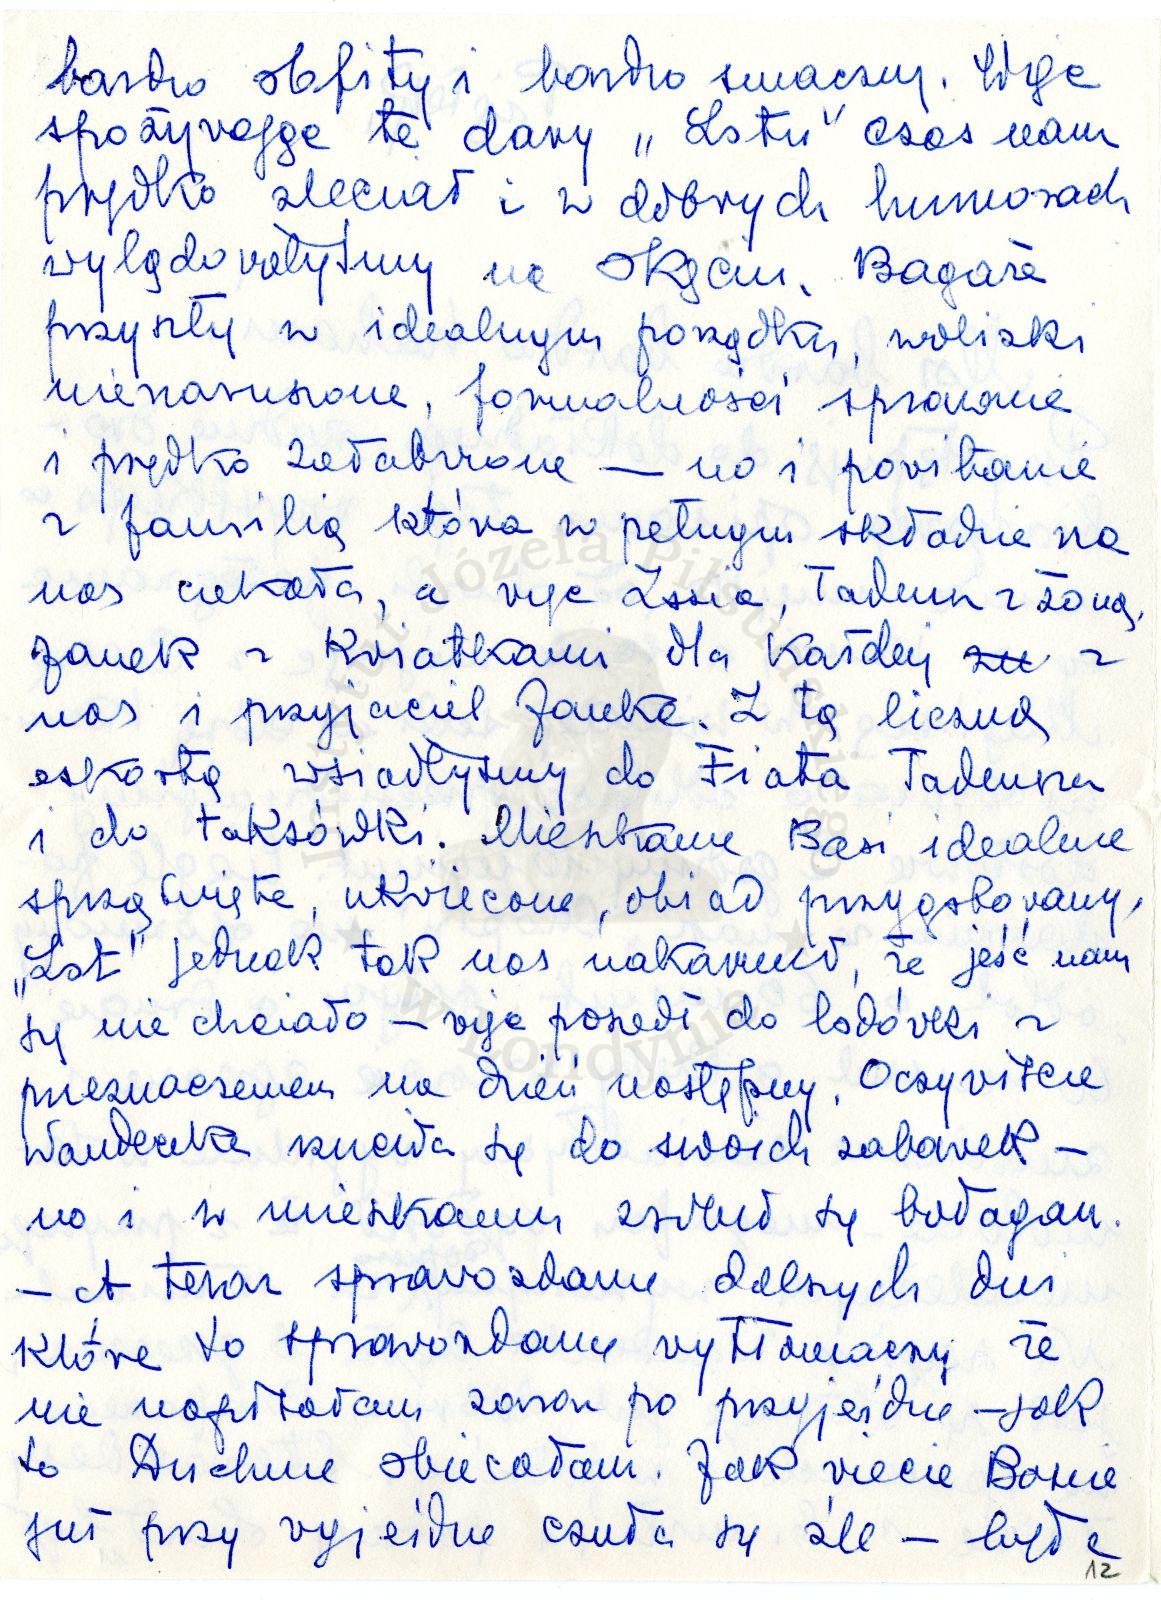 bardzo obfity i bardzo smaczny. Więc
spożywając te dary „Lotu" czas nam
prędko zleciał i w dobrych humorach
wylądowałyśmy na Okęciu. Bagaże
przyszły w idealnym porządku, walizki
nienaruszone, formalności sprawnie
i prędko załatwione — no i powitanie
z familią która w pełnym składzie na
nas czekała, a więc Zosia, Tadeusz z żoną,
Janek z kwiatkami dla każdej z
nas i przyjaciel Janka. Z tą liczną
eskortą wsiadłyśmy do Fiata Tadeusza
i do taksówki. Mieszkanie Basi idealnie
sprzątnięte, ukwiecone, obiad przygotowany,
„Lot" jednak tak nas nakarmił, że jeść nam
się nie chciało — więc poszedł do lodówki z
przeznaczeniem na dzień następny. Oczywiście
Wandeczka rzuciła się do swoich zabawek —
no i w mieszkaniu zrobił się bałagan.
— A teraz sprawozdanie dalszych dni
które to sprawozdanie wytłomaczy że
nie napisałam zaraz po przyjeździe — jak
to obiecałam. Jak wiecie Basia
już przy wyjeździe czuła się źle — była
12
Instytut Józefa Piłsudskiego
w Londynie